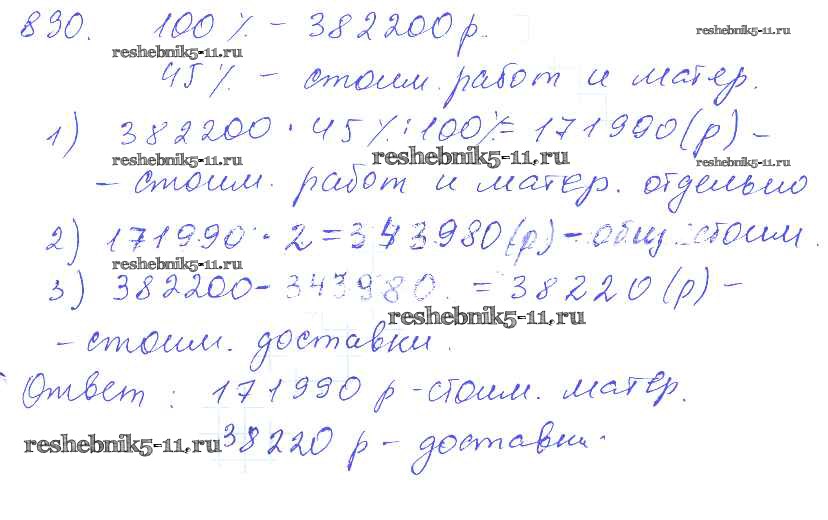 890. 100 % – 382200 р.
reshebnik5-11.ru reshebnik5-11.ru
45 % – стоим. работ и матер.
1) 382200 · 45 % : 100 % = 171990 (р) –
reshebnik5-11.ru reshebnik5-11.ru reshebnik5-11.ru
– стоим. работ и матер. отдельно
2) 171990 · 2 = 343980 (р) – общ. стоим.
reshebnik5-11.ru
3) 382200 – 343980 = 38220 (р) –
reshebnik5-11.ru
– стоим. доставки.
Ответ : 171990 р – стоим. матер.
reshebnik5-11.ru 38220 р – доставки.